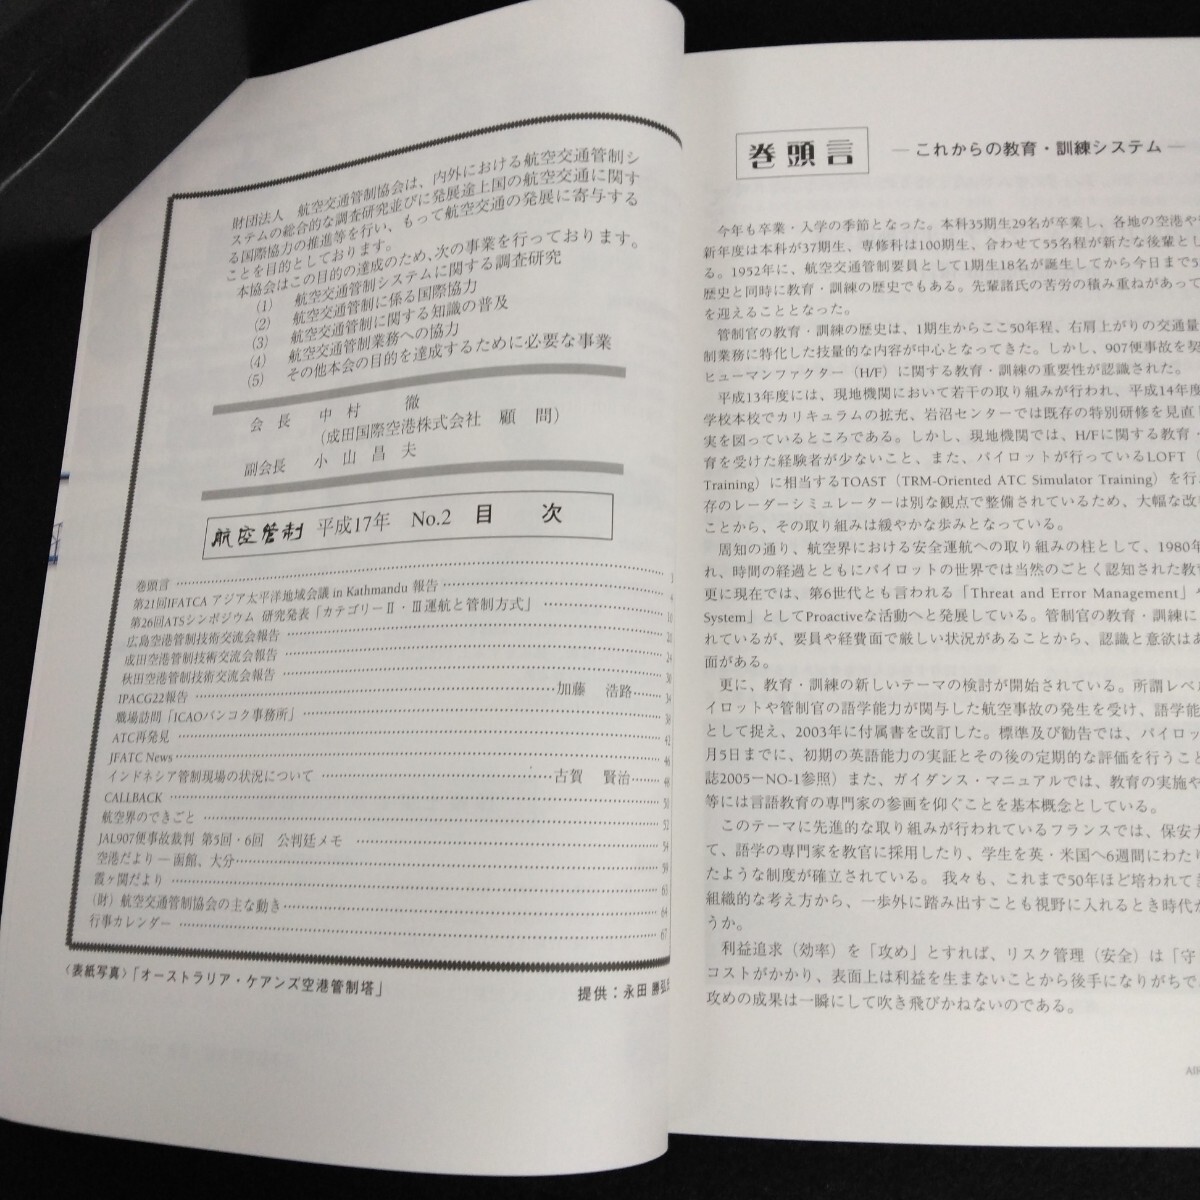 財団法人 航空交通管制協会は、内外における航空交通管制シ
ステムの総合的な調査研究並びに発展途上国の航空交通に関す
る国際協力の推進等を行い、もって航空交通の発展に寄与する
ことを目的としております。
本協会はこの目的の達成のため、次の事業を行っております。
(1) 航空交通管制システムに関する調査研究
(2) 航空交通管制に係る国際協力
(3) 航空交通管制に関する知識の普及
(4) 航空交通管制業務への協力
(5) その他本会の目的を達成するために必要な事業
会 長 中 村 徹
(成田国際空港株式会社 顧 問)
副会長 小 山 昌 夫
航空管制 平成17年 No.2 目 次
巻頭言
第21回IFATCA アジア太平洋地域会議 in Kathmandu 報告
第26回ATSシンポジウム 研究発表「カテゴリーⅡ・Ⅲ運航と管制方式」
広島空港管制技術交流会報告 20
成田空港管制技術交流会報告 24
秋田空港管制技術交流会報告 30
IPACG22報告 加藤 浩路 34
職場訪問「ICAOバンコク事務所」 38
ATC再発見 42
JFATC News 46
インドネシア管制現場の状況について 古賀 賢治 48
CALLBACK 50
航空界のできごと 52
JAL907便事故裁判 第5回・6回 公判廷メモ 54
空港だより ― 函館、大分 59
霞ヶ関だより 63
(財)航空交通管制協会の主な動き 64
行事カレンダー 67
〈表紙写真〉「オーストラリア・ケアンズ空港管制塔」
提供：永田 勝弘
巻頭言 ―これからの教育・訓練システム―
今年も卒業・入学の季節となった。本科35期生29名が卒業し、各地の空港や
新年度は本科が37期生、専修科は100期生、合わせて55名程が新たな後輩とし
る。1952年に、航空交通管制要員として1期生18名が誕生してから今日まで5
歴史と同時に教育・訓練の歴史でもある。先輩諸氏の苦労の積み重ねがあって
を迎えることとなった。
管制官の教育・訓練の歴史は、1期生からここ50年程、右肩上がりの交通量
制業務に特化した技量的な内容が中心となってきた。しかし、907便事故を契
ヒューマンファクター（H/F）に関する教育・訓練の重要性が認識された。
平成13年度には、現地機関において若干の取り組みが行われ、平成14年度
学校本校でカリキュラムの拡充、岩沼センターでは既存の特別研修を見直し
実を図っているところである。しかし、現地機関では、H/Fに関する教育・
育を受けた経験者が少ないこと、また、パイロットが行っているLOFT（
Training）に相当するTOAST（TRM-Oriented ATC Simulator Training）を行
存のレーダーシミュレーターは別な観点で整備されているため、大幅な改
ことから、その取り組みは緩やかな歩みとなっている。
周知の通り、航空界における安全運航への取り組みの柱として、1980年
れ、時間の経過とともにパイロットの世界では当然のごとく認知された教
更に現在では、第6世代とも言われる「Threat and Error Management」や
System」としてProactiveな活動へと発展している。管制官の教育・訓練に
れているが、要員や経費面で厳しい状況があることから、認識と意欲はあ
面がある。
更に、教育・訓練の新しいテーマの検討が開始されている。所謂レベル
イロットや管制官の語学能力が関与した航空事故の発生を受け、語学能
として捉え、2003年に付属書を改訂した。標準及び勧告では、パイロッ
月5日までに、初期の英語能力の実証とその後の定期的な評価を行うこと
誌2005－NO-1参照）また、ガイダンス・マニュアルでは、教育の実施や
等には言語教育の専門家の参画を仰ぐことを基本概念としている。
このテーマに先進的な取り組みが行われているフランスでは、保安大
て、語学の専門家を教官に採用したり、学生を英・米国へ6週間にわたり
たような制度が確立されている。我々も、これまで50年ほど培われてき
組織的な考え方から、一歩外に踏み出すことも視野に入れるとき時代が
うか。
利益追求（効率）を「攻め」とすれば、リスク管理（安全）は「守
コストがかかり、表面上は利益を生まないことから後手になりがちで
攻めの成果は一瞬にして吹き飛びかねないのである。
AIR